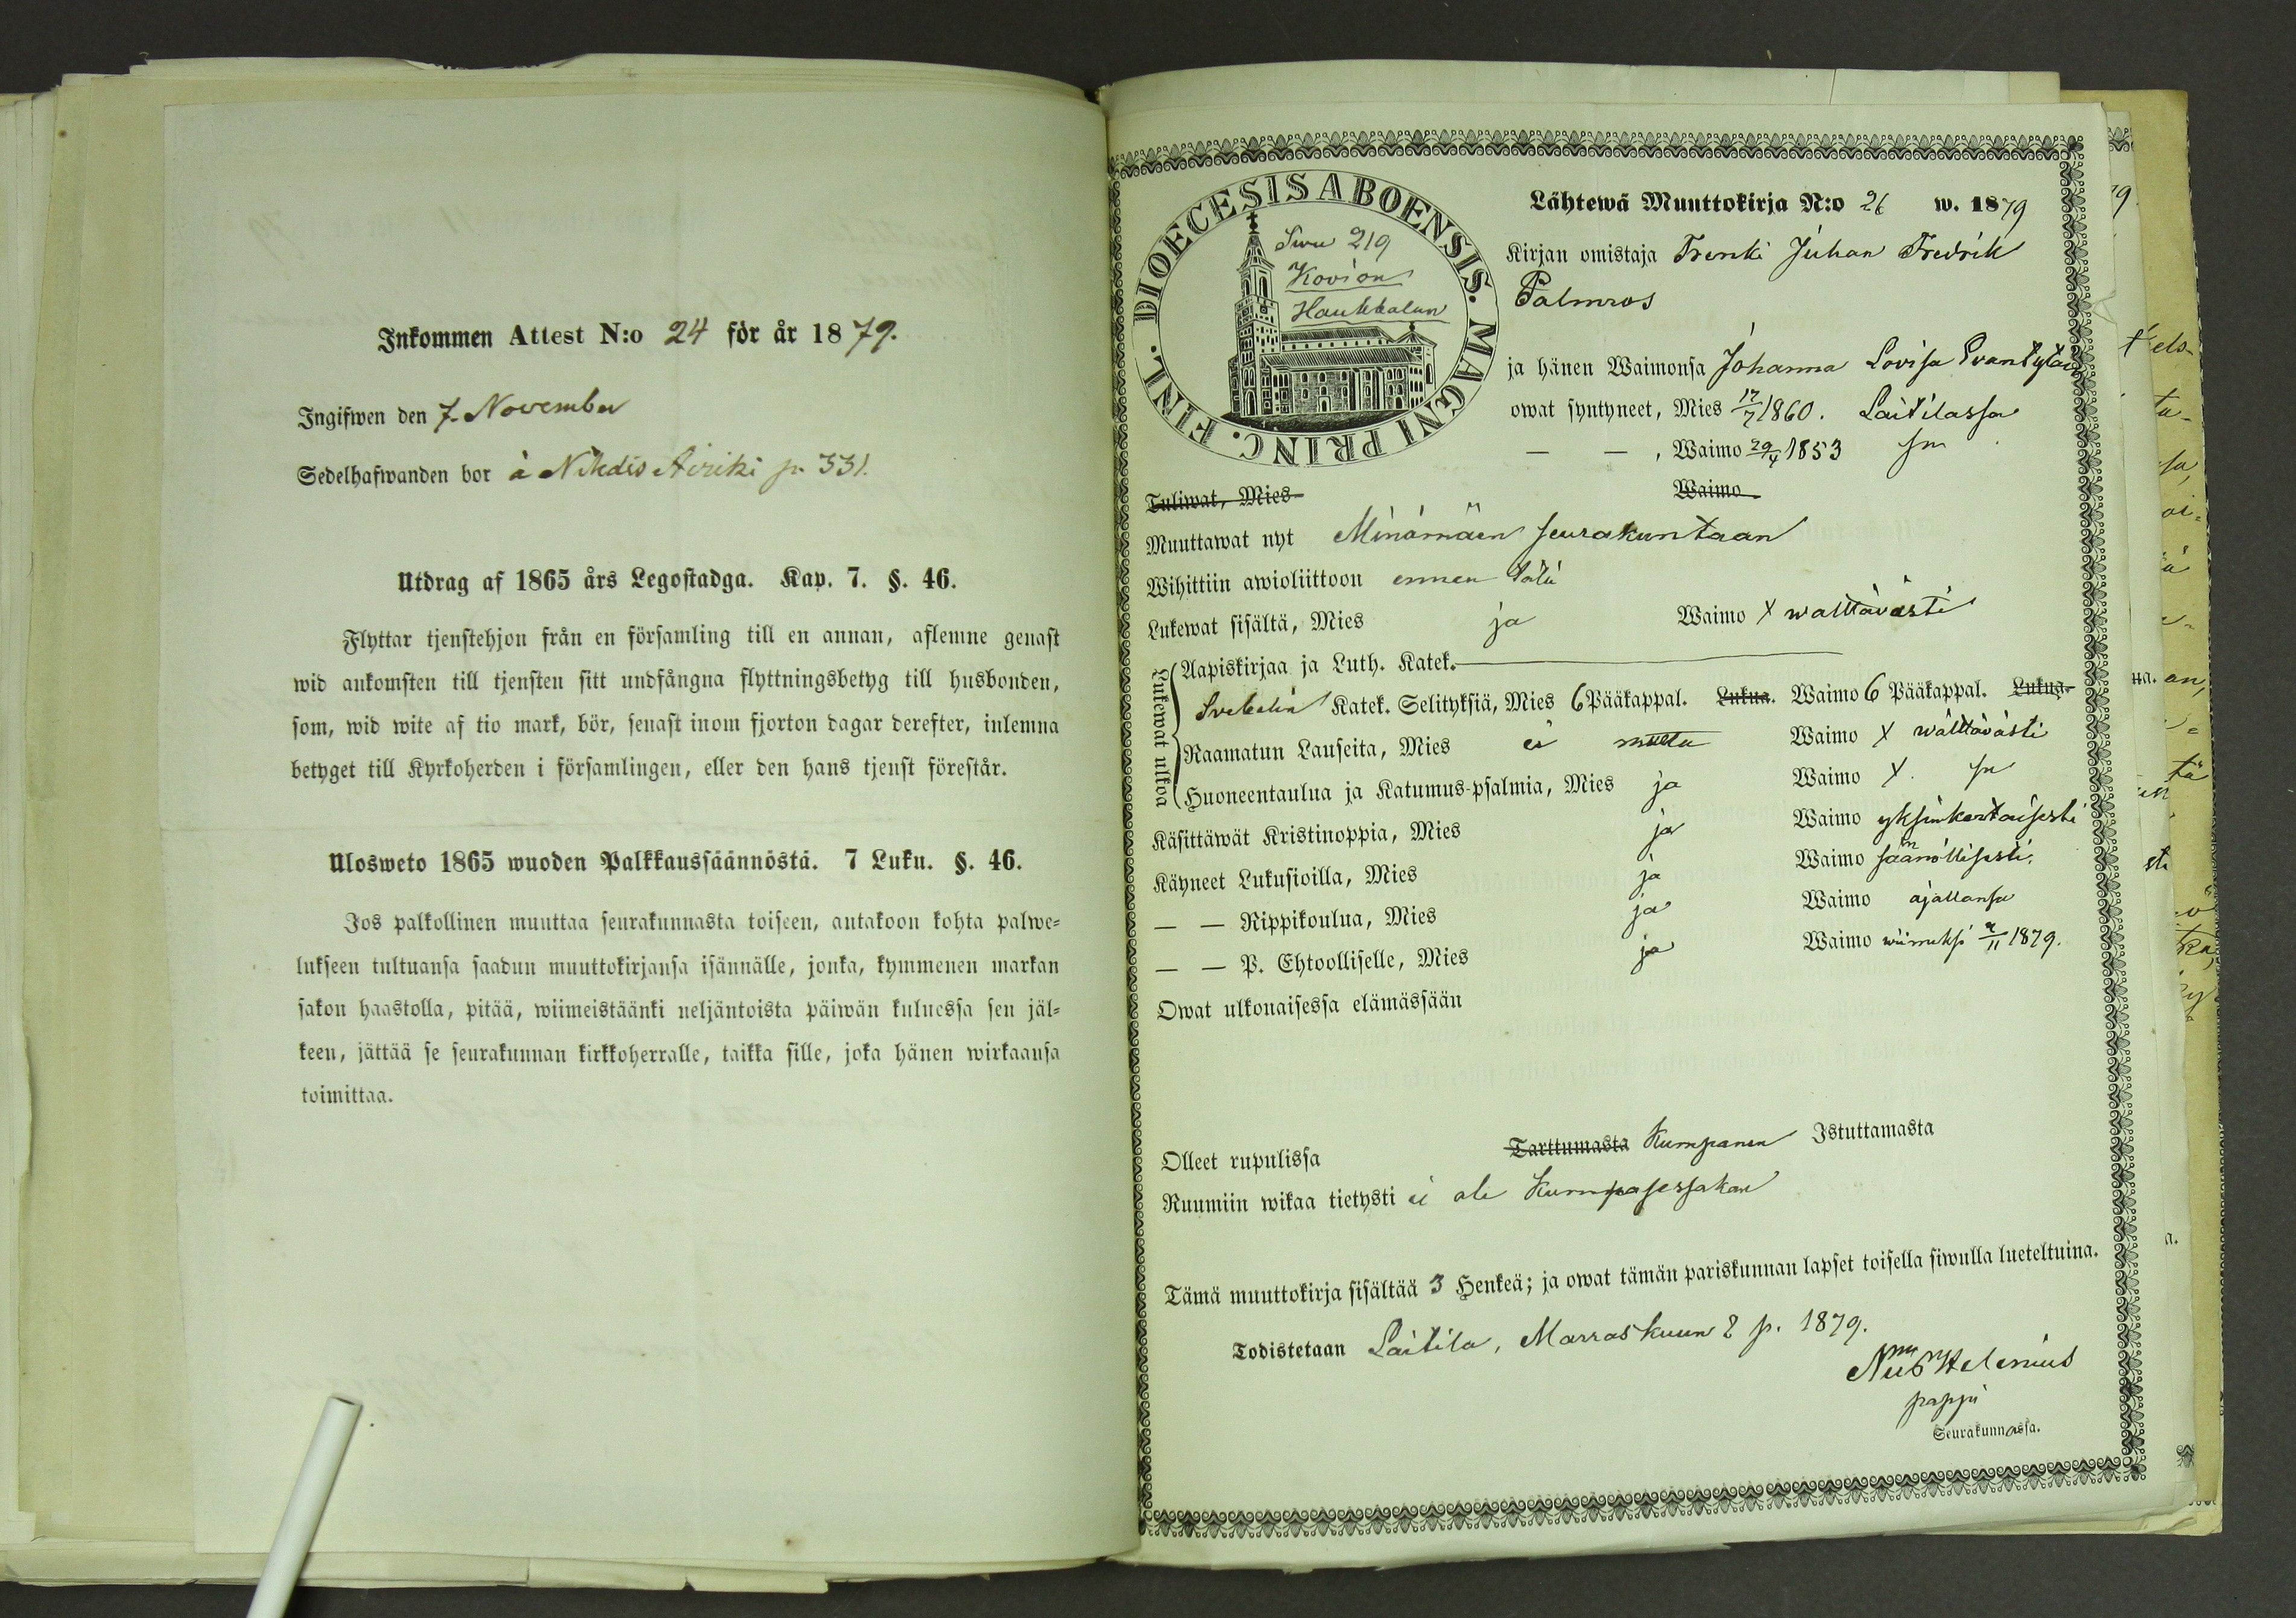 Inkommen Attest N:o 24 för år 1879.
Ingifwen den 7. November
Sedelhafwanden bor å Nihdis Airiki p. 331.
Utdrag af 1865 års Legostadga. Kap. 7. §. 46.
Flyttar tjenstehjon från en församling till en annan, aflemne genast
wid ankomsten till tjensten sitt undfångna flyttningsbetyg till husbonden,
som, wid wite af tio mark, bör, senast inom fjorton dagar derefter, inlemna
betyget till Kyrkoherden i församlingen, eller den hans tjenst förestår.
Ulosweto 1865 wuoden Palkkaussäännöstä. 7 Luku. §. 46.
Jos palkollinen muuttaa seurakunnasta toiseen, antakoon kohta palwe-
lukseen tultuansa saadun muuttokirjansa isännälle, jonka, kymmenen markan
sakon haastolla, pitää, wiimeistäänki neljäntoista päiwän kuluessa sen jäl-
keen, jättää se seurakunnan kirkkoherralle, taikka sille, joka hänen wirkaansa
toimittaa.
DIOECESIS ABOENSIS. MAGNI PRINC. FINL.
Siwu 219
Kovion
Haukkalan
Lähtewä Muuttokirja N:o 26 w. 1879
Kirjan omistaja Trenki Juhan Fredrik
Palmros
ja hänen Waimonsa Johanna Lovisa Evantytär
owat syntyneet, Mies 17/7 1860. Laitilassa
— — , Waimo 29/4 1853 sm
Tuliwat, Mies Waimo
Muuttawat nyt Minämäen seurakuntaan
Wihittiin awioliittoon ennen
Lukewat sisältä, Mies ja Waimo X wälttävästi
Lukewat ulkoa
Aapiskirjaa ja Luth. Katek.
Svebelin Katek. Selityksiä, Mies 6 Pääkappal. Lukua. Waimo 6 Pääkappal. Lukua.
Raamatun Lauseita, Mies ei Waimo X wälttävästi
Huoneentaulua ja Katumus-psalmia, Mies ja Waimo X. sm
Käsittäwät Kristinoppia, Mies ja Waimo yksinkertaisesti
Käyneet Lukusioilla, Mies ja Waimo säännöllisesti.
— — Rippikoulua, Mies ja Waimo ajallansa
— — P. Ehtoolliselle, Mies ja Waimo wiimeksi 2/11 1879.
Owat ulkonaisessa elämässään
Olleet rupulissa Tarttumasta Kumpanen Istuttamasta
Ruumiin wikaa tietysti ei ole Kumpasessakan
Tämä muuttokirja sisältää 3 Henkeä; ja owat tämän pariskunnan lapset toisella siwulla lueteltuina.
Todistetaan Laitila, Marraskuun 2 p. 1879.
Helenius
pappi
Seurakunnassa.